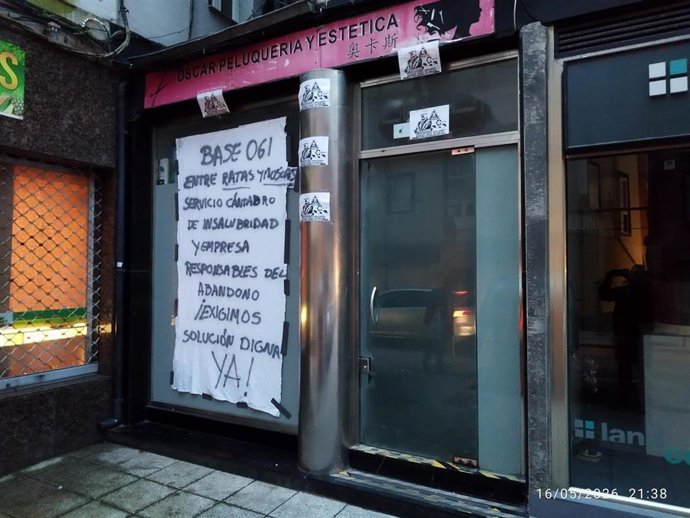 OSCAR PELUQUERIA Y ESTETICA
奥卡斯
BASE 061
ENTRE RATAS Y MOSCAS
SERVICIO CÁNTABRO
DE INSALUBRIDAD
Y EMPRESA
RESPONSABLES DEL
ABANDONO
¡EXIGIMOS
SOLUCIÓN DIGNA
YA!
16/05/2026 21:38